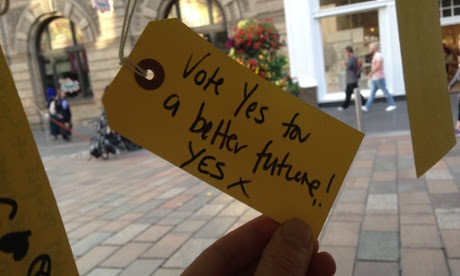 Vote Yes for
a better future!
YES x